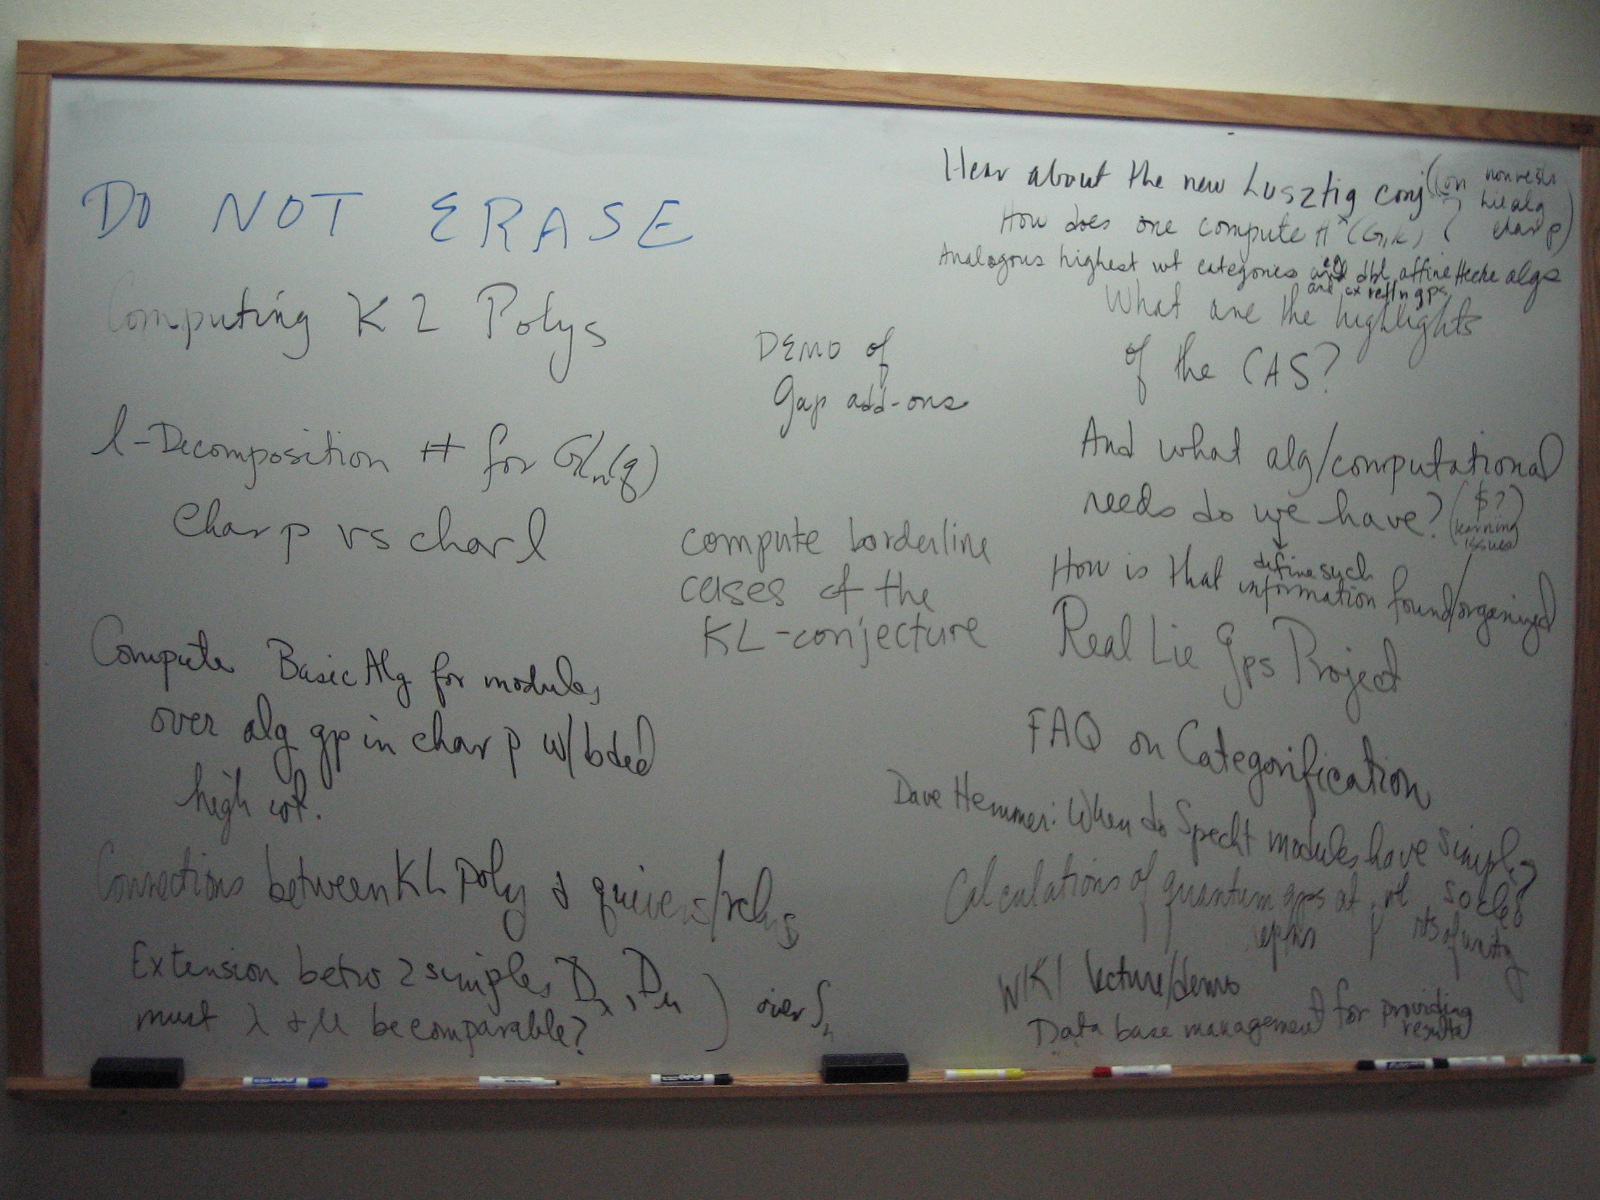 DO NOT ERASE
Computing KL Polys
l-Decomposition # for Gln(q)
char p vs char l
Compute Basic Alg for modules
over alg gp in char p w/bded
high wt.
Connections between KL Poly & quivers/relns
Extension betw 2 simples Dλ, Dμ ) over Sn
must λ & μ be comparable?
DEMO of
Gap add-ons
compute borderline
cases of the
KL-conjecture
Hear about the new Lusztig conj (on nonrestr
Lie alg
char p)
How does one compute H*(G,k)?
Analogous highest wt categories eg dbl affine Hecke algs
and cx refln gps
What are the highlights
of the CAS?
And what alg/computational
needs do we have? ($?
learning
issues)
define such
How is that information found/organized
Real Lie Gps Project
FAQ on Categorification
Dave Hemmer: When do Specht modules have simple
socles?
Calculations of quantum gps at rts of unity
WIKI lecture/demo
Data base management for providing
results